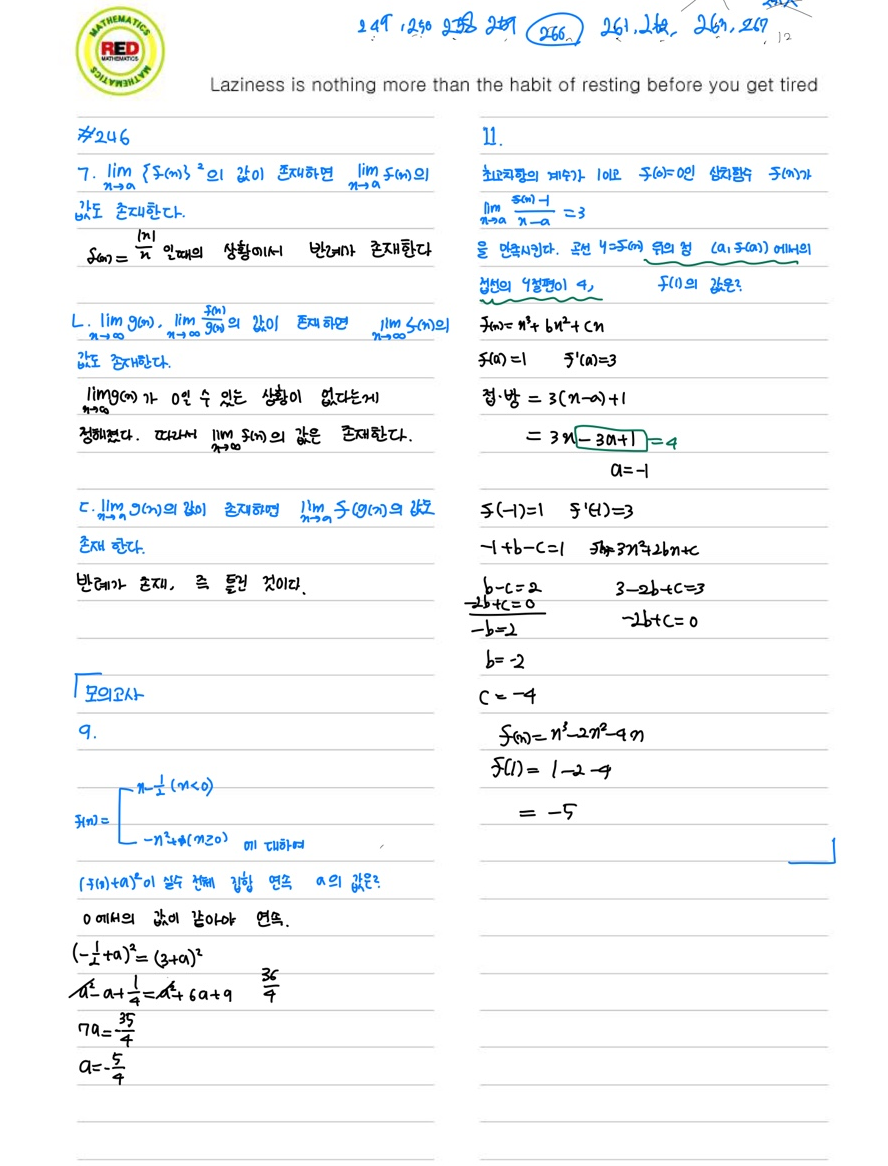 249, 250 258 259 266 261, 262, 263, 267
12
MATHEMATICS
RED
MATHEMATICS
MATHEMATICS
Laziness is nothing more than the habit of resting before you get tired
#246
7. lim {f(x)}² 의 값이 존재하면 lim f(x)의
x→a x→a
값도 존재한다.
f(x) = |x|/x 인 때의 상황에서 반례가 존재한다
ㄴ. lim g(x), lim f(x)/g(x) 의 값이 존재하면 lim f(x)의
x→∞ x→∞ x→∞
값도 존재한다.
lim g(x) 가 0일 수 있는 상황이 없다는게
x→∞
정해졌다. 따라서 lim f(x)의 값은 존재한다.
x→∞
ㄷ. lim g(x)의 값이 존재하면 lim f(g(x))의 값도
x→a x→a
존재 한다.
반례가 존재, 즉 틀린 것이다.
모의고사
9.
x-1/2 (x<0)
f(x) =
-x²+3 (x≥0) 에 대하여
(f(x)+a)²이 실수 전체 집합 연속 a의 값은?
0에서의 값이 같아야 연속.
(-1/2+a)² = (3+a)²
a²-a+1/4 = a²+6a+9 36/4
7a = -35/4
a = -5/4
11.
최고차항의 계수가 1이고 f(0)=0인 삼차함수 f(x)가
lim f(x)-1/x-a = 3
x→a
을 만족시킨다. 곡선 y=f(x) 위의 점 (a, f(a))에서의
접선의 y절편이 4, f(1)의 값은?
f(x) = x³+bx²+cx
f(a)=1 f'(a)=3
접·방 = 3(x-a)+1
= 3x-3a+1=4
a=-1
f(-1)=1 f'(-1)=3
-1+b-c=1 3x²+2bx+c
b-c=2 3-2b+c=3
-2b+c=0 -2b+c=0
-b=2
b=-2
c=-4
f(x)=x³-2x²-4x
f(1)= 1-2-4
= -5